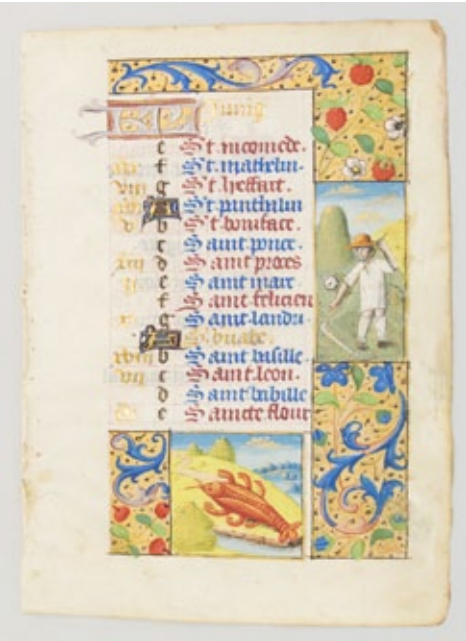 juing
e St nicomede.
f St mathelin.
viii g St lyeffart.
A St panthalin
v b St boniface.
c Saint ponce.
xiii d Saint proces
e Saint marc.
f Saint felicien
x g Saint landri.
A
xviii b Saint basille.
vii c Saint leon.
d Saint babille
e Saincte flour